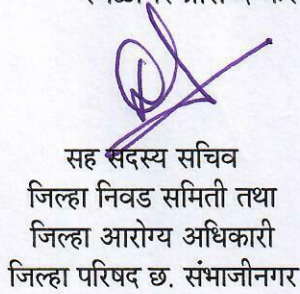 सह सदस्य सचिव
जिल्हा निवड समिती तथा
जिल्हा आरोग्य अधिकारी
जिल्हा परिषद छ. संभाजीनगर